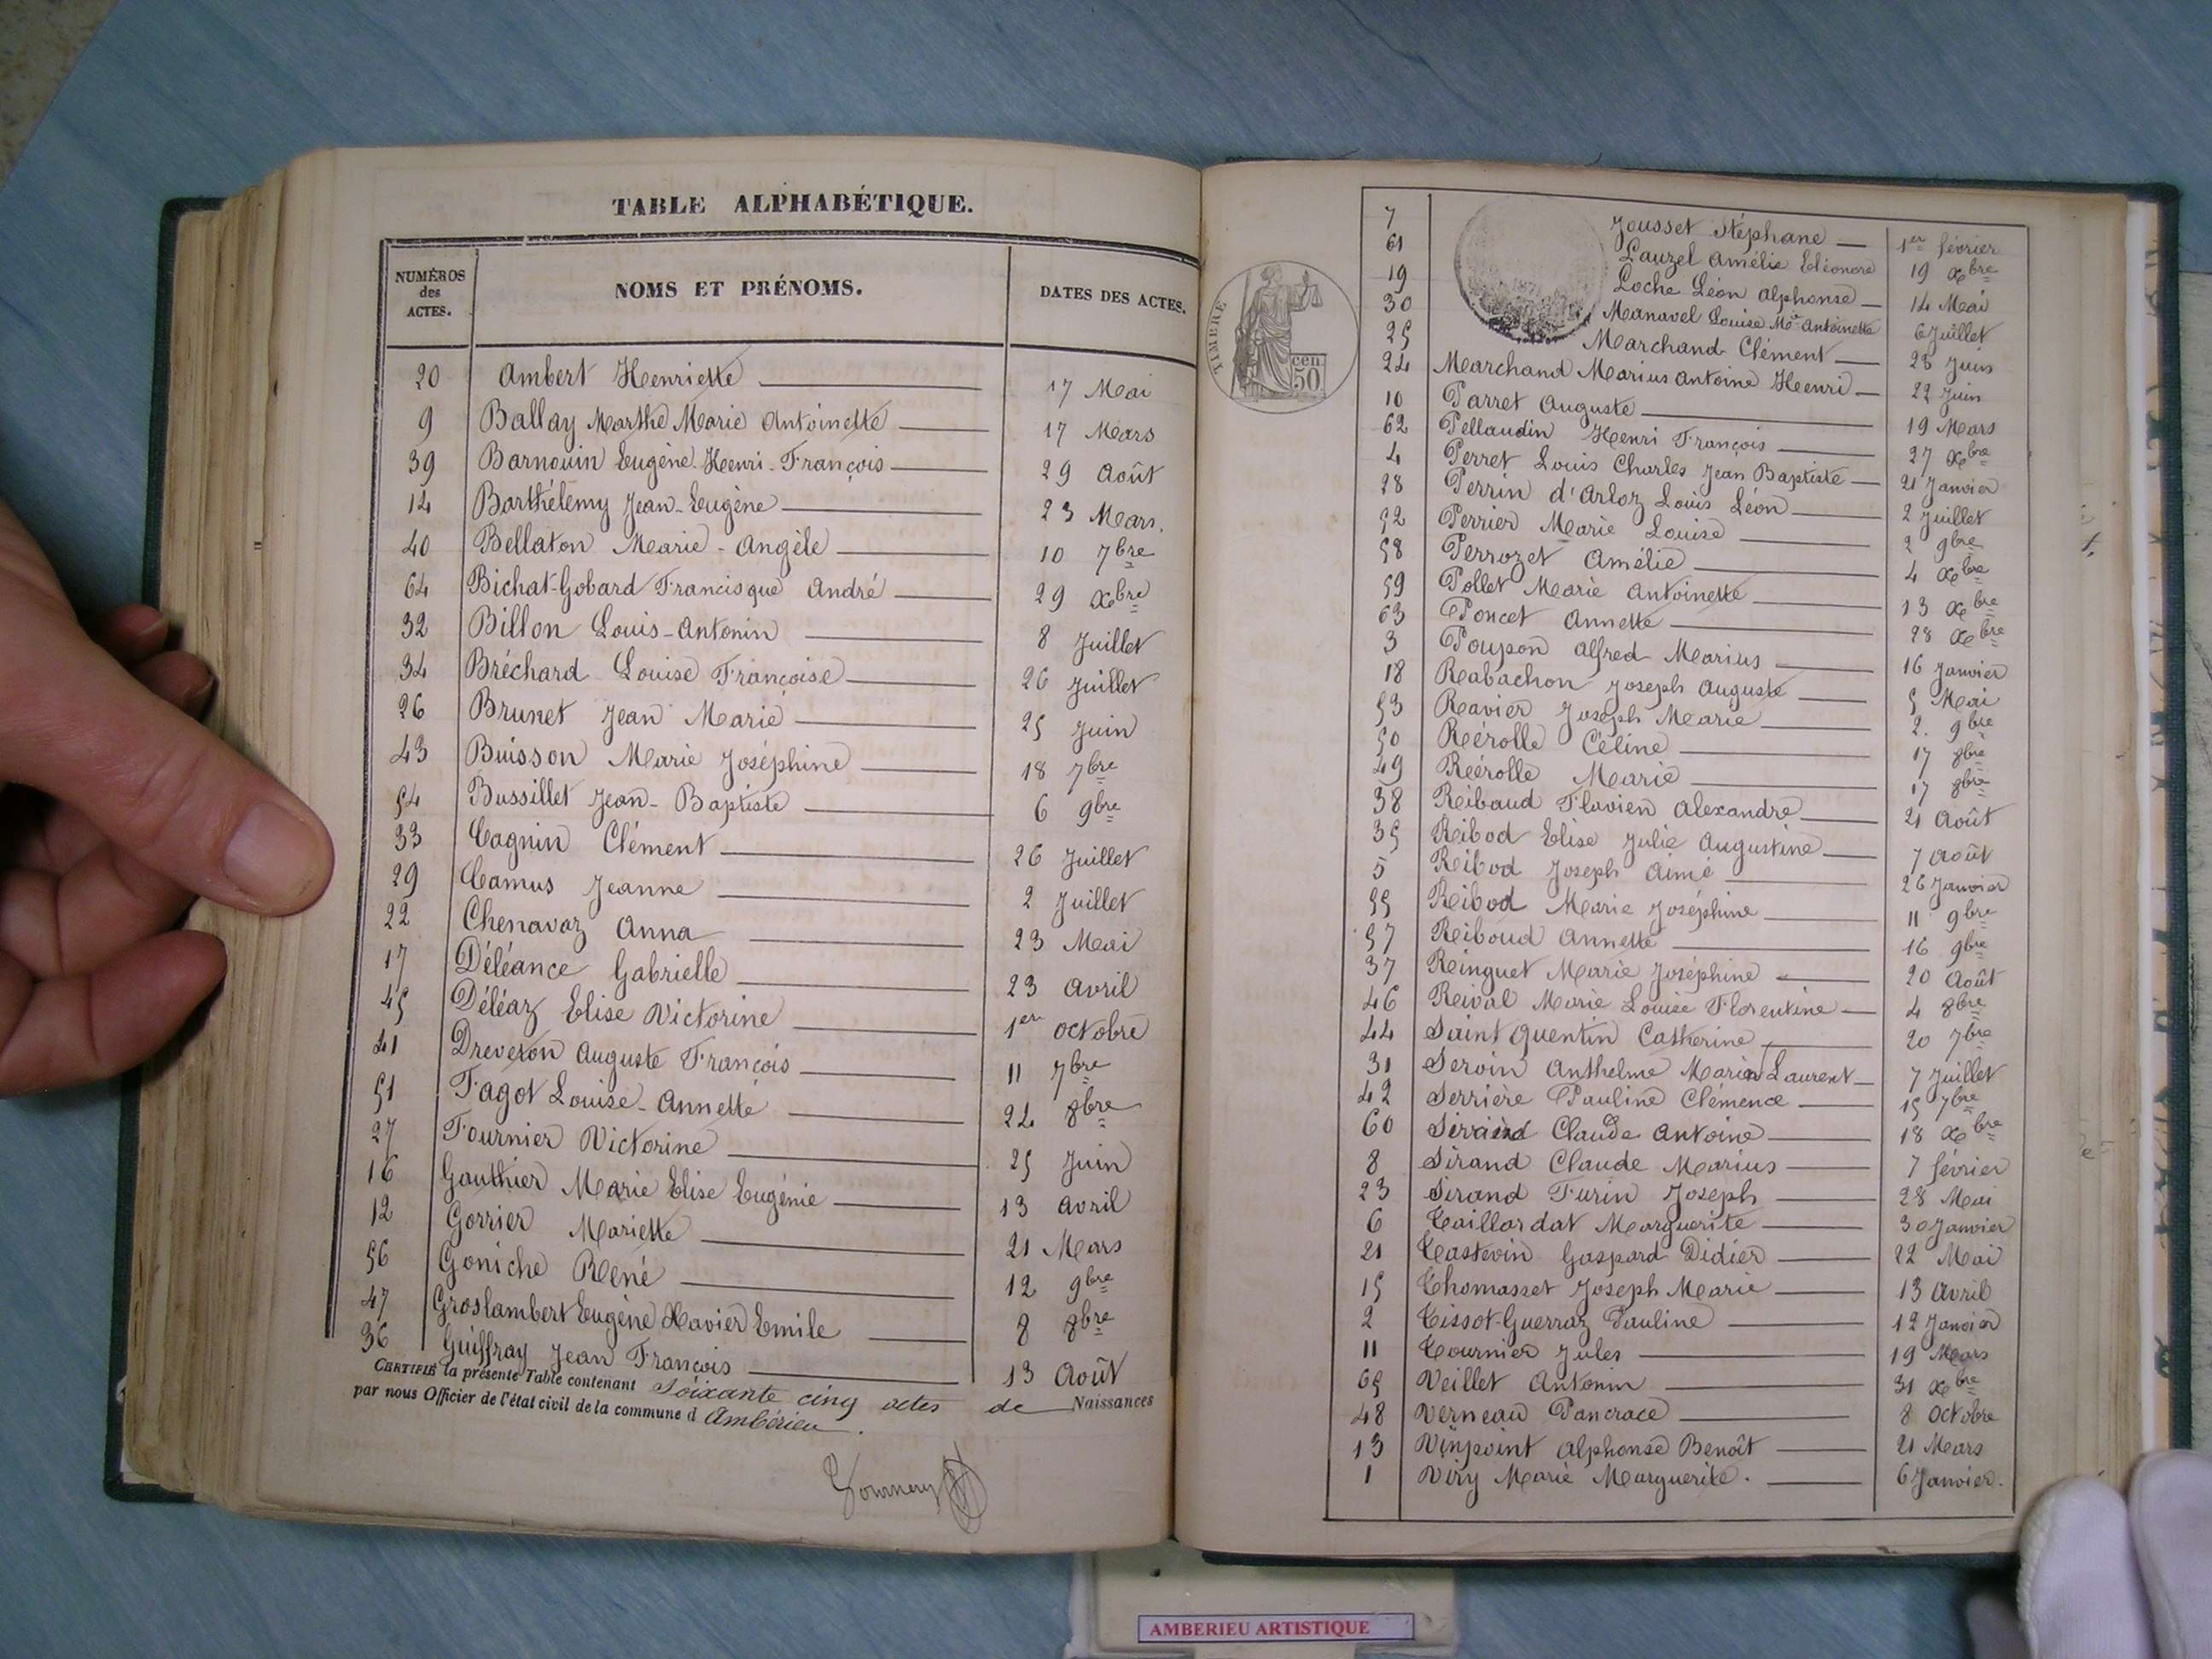 TABLE ALPHABÉTIQUE.
NUMÉROS des ACTES. NOMS ET PRÉNOMS. DATES DES ACTES.
20 Ambert Henriette 17 Mai
9 Ballay Marthe Marie Antoinette 17 Mars
39 Barnouin Eugène Henri-François 29 Août
14 Barthélemy Jean-Eugène 23 Mars.
40 Bellaton Marie-Angèle 10 7bre
64 Bichat-Gobard Francisque André 29 Xbre
32 Billon Louis-Antonin 8 Juillet
34 Bréchard Louise Françoise 26 Juillet
26 Brunet Jean Marie 25 Juin
43 Buisson Marie Joséphine 18 7bre
54 Bussillet Jean-Baptiste 6 9bre
33 Cagnin Clément 26 Juillet
29 Camus Jeanne 2 Juillet
22 Chenavaz Anna 23 Mai
17 Déléance Gabrielle 23 Avril
45 Déléaz Elise Victorine 1er Octobre
41 Dreveton Auguste François 11 7bre
51 Fagot Louise-Annette 24 8bre
27 Fournier Victorine 25 Juin
16 Gauthier Marie Elise Eugénie 13 Avril
12 Gorrier Mariette 21 Mars
56 Goniche René 12 9bre
47 Groslambert Eugène Xavier Emile 8 8bre
36 Guiffray Jean François 13 Août
CERTIFIÉ la présente Table contenant Soixante cinq actes de Naissances
par nous Officier de l'état civil de la commune d Ambérieu.
TIMBRE
50 cen
7 Jousset Stéphane 1er février
61 Lauzel Amélie Eléonore 19 Xbre
19 Loche Léon Alphonse 14 Mai
30 Manavel Louise Mie Antoinette 6 Juillet
25 Marchand Clément 23 Juin
24 Marchand Marius Antoine Henri 22 Juin
10 Parret Auguste 19 Mars
62 Pellaudin Henri François 27 Xbre
4 Perret Louis Charles Jean Baptiste 21 Janvier
28 Perrin d'Arloz Louis Léon 2 Juillet
52 Perrier Marie Louise 2 9bre
58 Perrozet Amélie 4 Xbre
59 Pollet Marie Antoinette 13 Xbre
63 Poncet Annette 28 Xbre
3 Poupon Alfred Marius 16 Janvier
18 Rabachon Joseph Auguste 5 Mai
53 Ravier Joseph Marie 2. 9bre
50 Rérolle Céline 17 8bre
49 Rérolle Marie 17 8bre
38 Ribaud Flavien Alexandre 21 Août
35 Ribod Elise Julie Augustine 7 Août
5 Ribod Joseph Aimé 26 Janvier
55 Ribod Marie Joséphine 11 9bre
57 Riboud Annette 16 9bre
37 Ringuet Marie Joséphine 20 Août
46 Rival Marie Louise Florentine 4 8bre
44 Saint Quentin Catherine 20 7bre
31 Servin Anthelme Marin Laurent 7 Juillet
42 Serrière Pauline Clémence 15 7bre
60 Claude Antoine 18 Xbre
8 Sirand Claude Marius 7 février
23 Sirand Furin Joseph 28 Mai
6 Taillardat Marguerite 30 Janvier
21 Tastevin Gaspard Didier 22 Mai
15 Thomasset Joseph Marie 13 Avril
2 Tissot-Guerraz Pauline 12 Janvier
11 Tournier Jules 19 Mars
65 Veillet Antonin 31 Xbre
48 Verneau Pancrace 8 Octobre
13 Vinpoint Alphonse Benoît 21 Mars
1 Viry Marie Marguerite. 6 Janvier.
AMBERIEU ARTISTIQUE